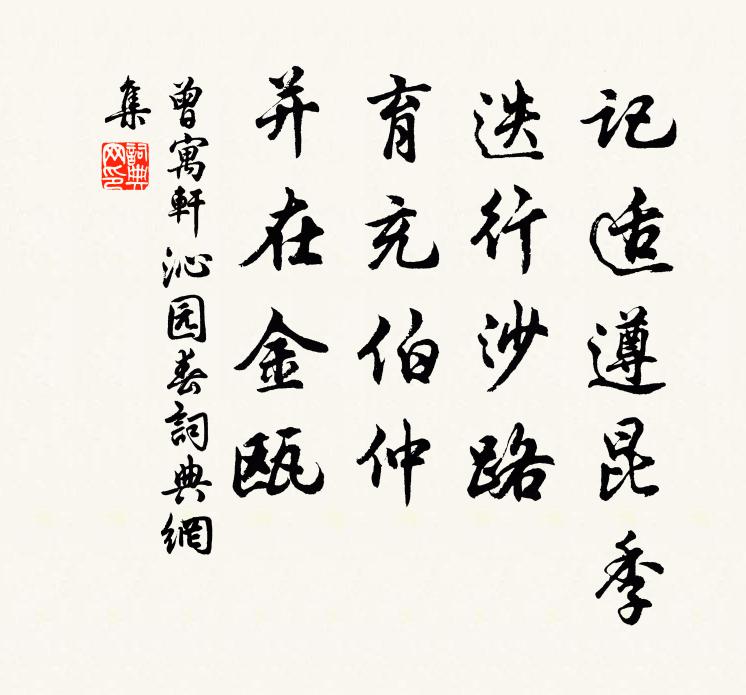 记适遵昆季
迭行沙路
育充伯仲
并在金瓯
曾寓軒沁园春詞典網
集
詞典网印